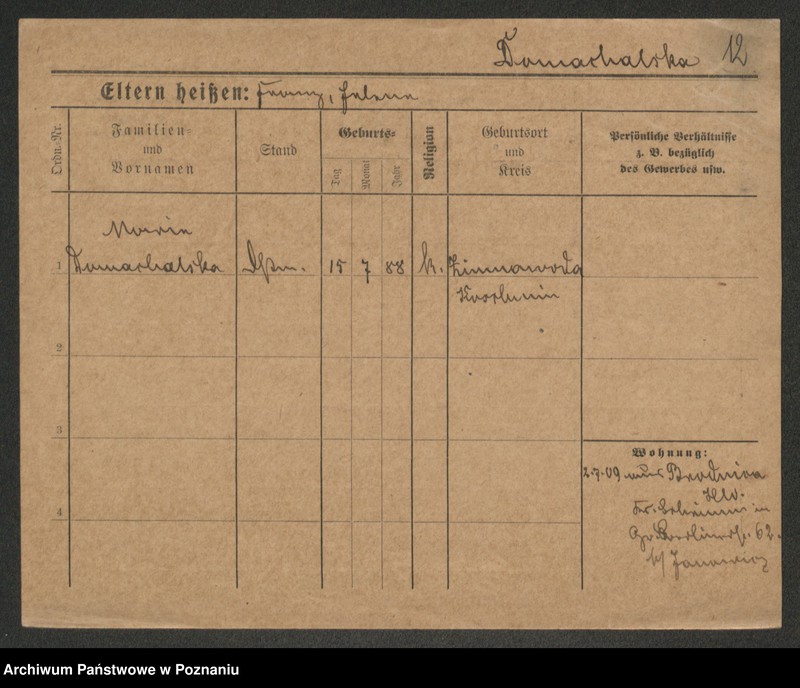 Domachalska 12
Eltern heißen: Franz, Helena
Ordn.-Nr.
Familien
und
Vornamen
Stand
Geburts-
Tag
Monat
Jahr
Religion
Geburtsort
und
Kreis
Persönliche Verhältnisse
z. B. bezüglich
des Gewerbes usw.
Maria
1 Domachalska 15 7 88 k. Zimnawoda
Koschmin
2
3
4
Wohnung:
2.7.09 aus Brodnica
Gr. Berlinerstr. 62.
b/ Janowicz
Archiwum Państwowe w Poznaniu